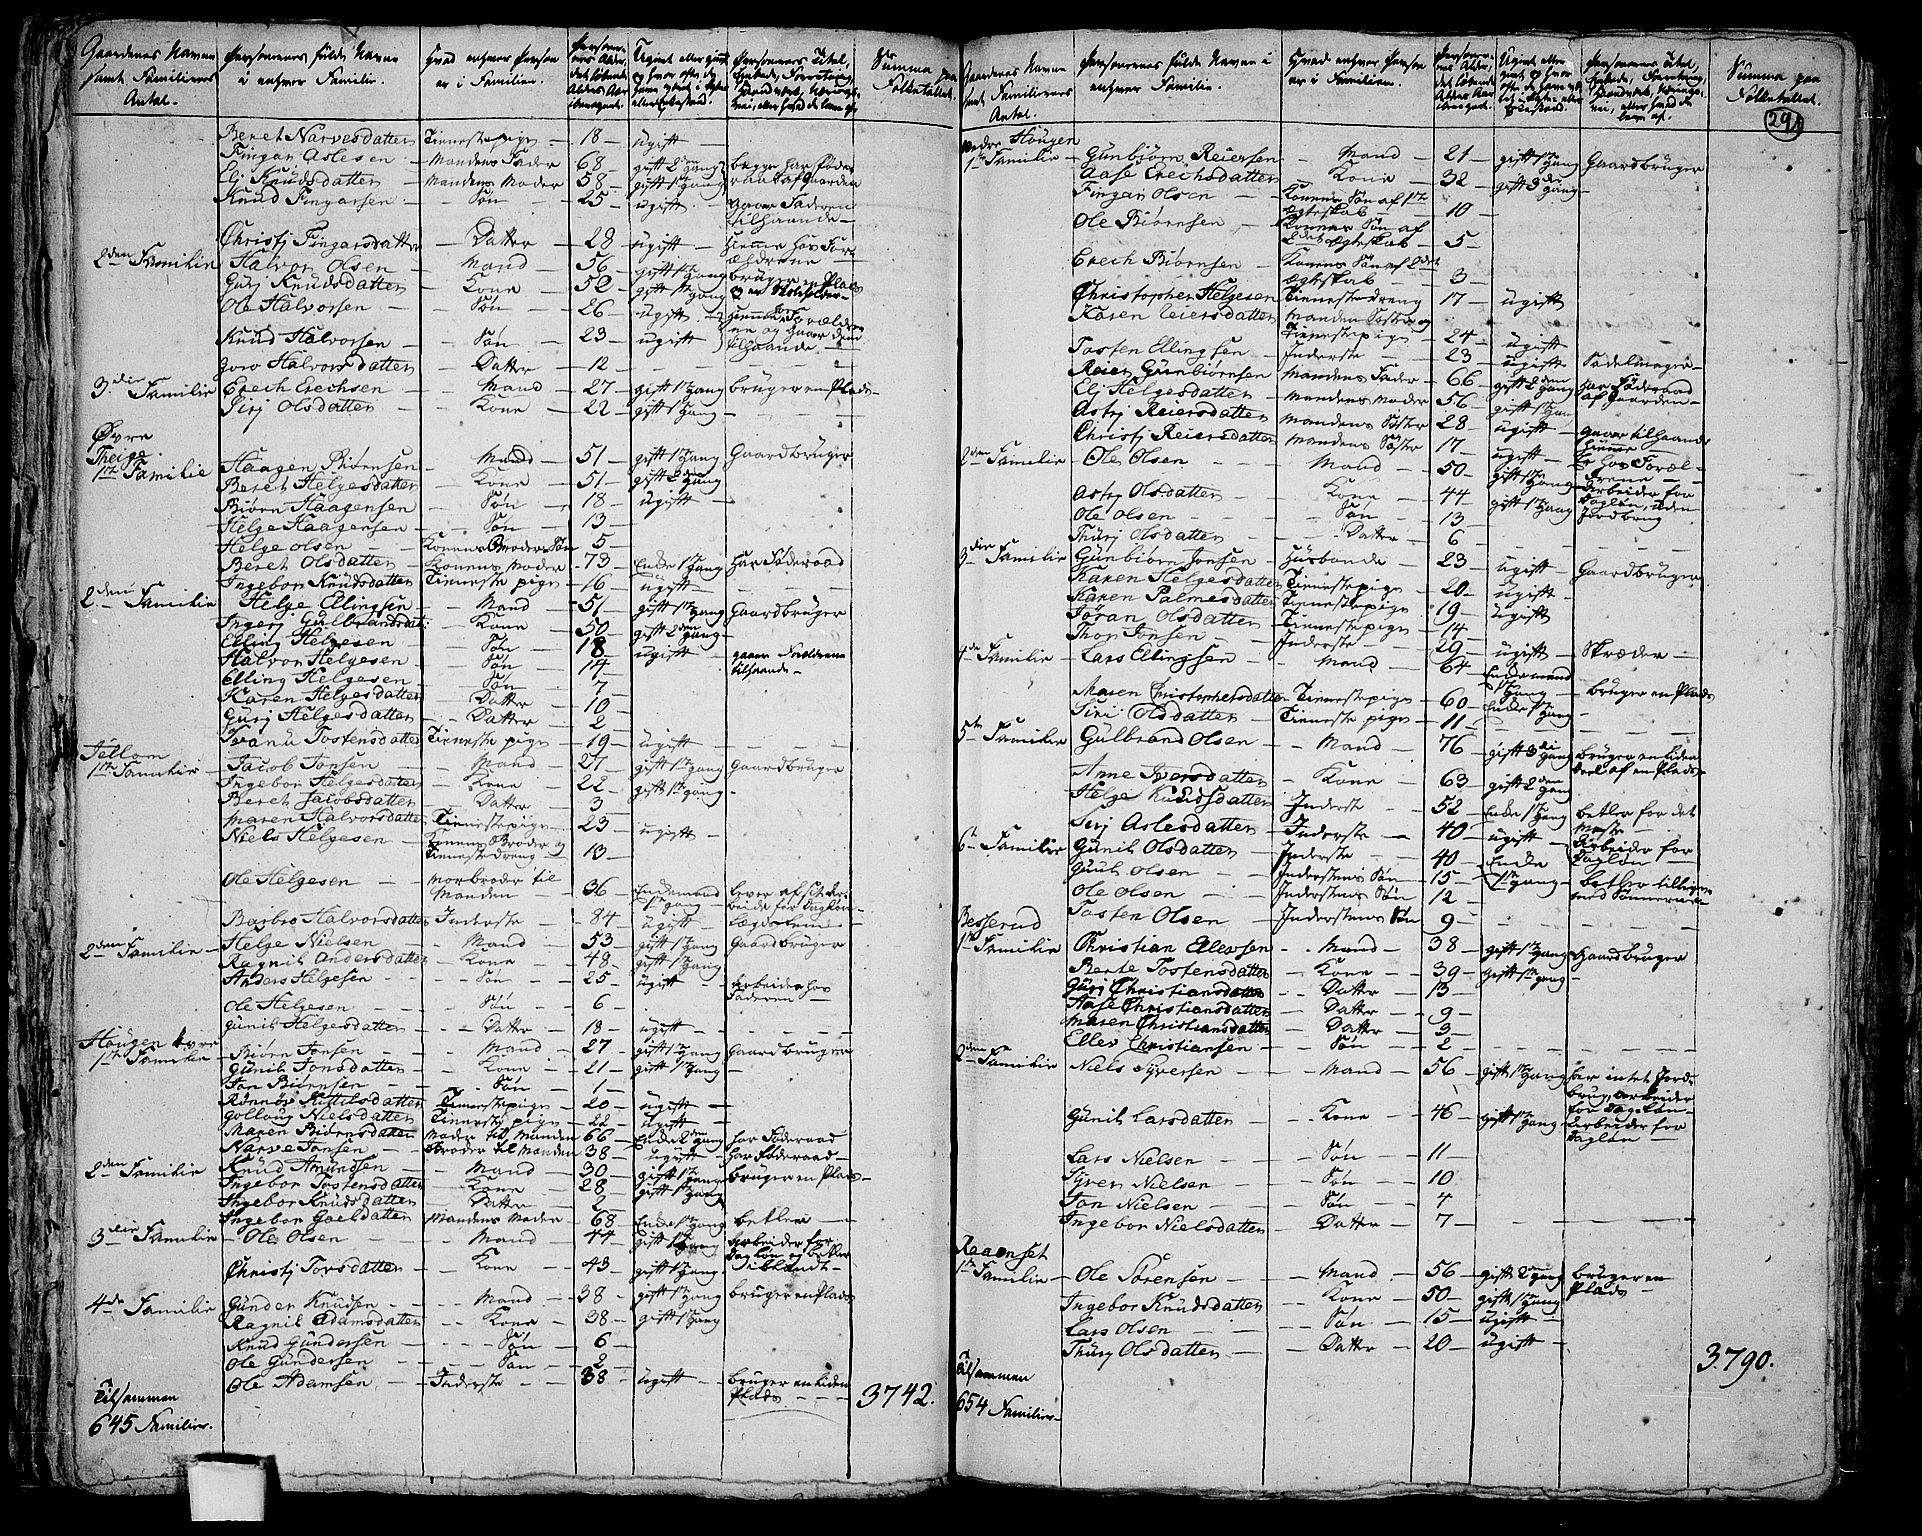 Gaardenes Navne samt Familiernes Antal.
Personernes fulde Navne i enhver Familie.
Hvad enhver Person er i Familien.
Summa paa Folketallet.
Beret Narvesdatter — Tienestepige — 18 — ugift —
Fingar Aslesen — Mandens Fader — 68 — gift 2den Gang — begge har Føderaad af Gaarden
Elj Knudsdatter — Mandens Moder — 58 — gift 1ste Gang
Knud Fingarsen — Søn — 25 — ugift — gaaer Faderen tilhaande —
Christj Fingarsdatter — Datter — 28 — ugift — hiemme hos Forældrene
2den Familie Halvor Olsen — Mand — 56 — gift 1ste Gang — bruger en Plads
Gurj Knudsdatter — Kone — 52 — gift 1ste Gang
Ole Halvorsen — Søn — 26 — ugift —
Knud Halvorsen — Søn — 23 — ugift — tilhaande —
Joro Halvorsdatter — Datter — 12 —
3die Familie Erech Erechsen — Mand — 27 — gift 1ste Gang — bruger en Plads —
Sirj Olsdatter — Kone — 22 — gift 1ste Gang —
Øvre Theige
1ste Familie Haagen Biørnsen — Mand — 51 — gift 1ste Gang — Gaardbruger
Beret Helgesdatter — Kone — 51 — gift 2den Gang
Biørn Haagensen — Søn — 18 — ugift —
Helge Haagensen — Søn — 13 —
Helge Olsen — Konens Broder Søn — 5 —
Beret Olsdatter — Konens Moder — 73 — Enke 1ste Gang — har Føderaad
Ingebor Knudsdatter — Tieneste pige — 16 — ugift —
2den Familie Helge Ellingsen — Mand — 51 — gift 1ste Gang — Gaardbruger
Ingerj Gulbrandsdat: — Kone — 50 — gift 2den Gang —
Elling Helgesen — Søn — 18 — ugift —
Halvor Helgesen — Søn — 14 — tilhaande —
Elling Helgesen — Søn — 7 —
Karen Helgesdatter — Datter — 10 —
Gurj Helgesdatter — Datter — 2 —
Tostensdatter — Tieneste pige — 19 — ugift —
Jellom
1ste Familie Jacob Jonsen — Mand — 27 — gift 1ste Gang — Gaardbruger
Ingebor Helgesdatter — Kone — 22 — gift 1ste Gang —
Beret Jacobsdatter — Datter — 3 —
Maren Halvorsdatter — Tienestepige — 23 — ugift —
Niels Helgesen — Konens Broder og Tienestedreng — 13 —
Ole Helgesen — Morbroder til Manden — 36 — Enkemand 1ste Gang — lever af sit Arbeide for Dagløn —
Barbro Halvorsdatter — Inderste — 84 — ugift — Lægdslem —
2den Familie — Helge Nielsen — Mand — 53 — gift 1ste Gang — Gaardbruger
Ragnil Andersdatter — Kone — 48 — gift 1ste Gang
Anders Helgesen — Søn — 25 — ugift — arbeider hos Faderen —
Ole Helgesen — Søn — 6 —
Gunil Helgesdatter — Datter — 18 — ugift —
Hougen øvre
1ste Familie — Biørn Jonsen — Mand — 27 — gift 1ste Gang — Gaardbruger
Gunil Jonsdatter — Kone — 21 — gift 1ste Gang —
Jon Biørnsen — Søn — 1 —
Kittilsdatter — Tienestepige — 20 — ugift —
Gollaug Nielsdatter — Tieneste pige — 22 — ugift —
Maren Biørnsdatter — Moder til Manden — 66 — Enke 2den Gang — har Føderaad
Narve Jonsen — Broder til Manden — 38 — ugift — har Føderaad —
2den Familie Knud Amundsen — Mand — 30 — gift 1ste Gang — bruger en Plads —
Ingebor Tostensdatter — Kone — 28 — gift 1ste Gang
Ingebor Knudsdatter — Datter — 2 —
Ingebor Goelsdatter — Mandens Moder — 68 — Enke 1ste Gang — betler —
3die Familie Ole Olsen — Mand — 44 — gift 1ste Gang — arbeider for Dagløn og betler iblandt —
Christj Torsdatter — Kone — 43 — gift 1ste Gang.
4de Familie Gunder Knudsen — Mand — 38 — gift 1ste Gang — bruger en Plads
Ragnil Adamsdatter — Kone — 38 — gift 1ste Gang
Knud Gundersen — Søn — 6 —
Ole Gundersen — Søn — 2 —
Ole Adamsen — Inderste — 38 — ugift — bruger en liden Plads —
Tilsammen
645 Familier.
3742.
Gaardenes Navne samt Familiernes Antal.
Personernes fulde Navne i enhver Familie.
Hvad enhver Person er i Familien.
Summa paa Folketallet.
291
Nedre Hougen
1ste Familie — Gunbiørn Reiersen — Mand — 21 — gift 1ste Gang — Gaardbruger
Aase Erechsdatter — Kone — 32 — gift 3die Gang —
Fingar Olsen — Konens Søn af 1ste Ægteskab — 10 —
Ole Biørnsen — Konens Søn af 2det Ægteskab — 5 —
Erech Biørnsen — Konens Søn af 2det Ægteskab — 3 —
Christopher Helgesen — Tienestedreng — 17 — ugift
Karen Reiersdatter — Mandens Søster og Tienestepige — 24 — ugift
Tosten Ellingsen — Inderste — 23 — ugift — Sadelmager —
Reier Gunbiørnsen — Mandens Fader — 66 — gift 2den Gang — har Føderaad af Gaarden —
Elj Helgesdatter — Mandens Moder — 56 — gift 1ste Gang
Astrj Reiersdatter — Mandens Søster — 28 — ugift — gaaer tilhaande hiemme —
Christj Reiersdatter — Mandens Søster — 17 — ugift — er hos Forældrene —
2den Familie — Ole Olsen — Mand — 50 — gift 1ste Gang — arbeider for Dagløn, uden Jordbrug
Astrj Olsdatter — Kone — 44 — gift 1ste Gang
Ole Olsen — Søn — 13 —
Thurj Olsdatter — Datter — 6 —
3die Familie Gunbiørn Jonsen — Husbonde — 23 — ugift — Gaardbruger
Karen Helgesdatter — Tienestepige — 20 — ugift —
Karen Palmesdatter — Tienestepige — 19 — ugift
Jøran Olsdatter — Tienestepige — 14 —
Thor Jonsen — Inderste — 29 — ugift — Skræder —
4de Familie — Lars Ellingsen — Mand — 64 — Enkemand 1ste Gang — bruger en Plads
Maren Christophersdatter — Tienestepige — 60 — Enke 1ste Gang —
Siri Olsdatter — Tieneste pige — 11 —
5te Familie Gulbrand Olsen — Mand — 76 — gift 3die Gang — bruger en liden Deel af en Plads
Anne Iversdatter — Kone — 63 — gift 2den Gang
Helge Knudsdatter — Inderste — 52 — Enke 1ste Gang — betler for det Meste —
Sirj Aslesdatter — Inderste — 40 — ugift — Arbeider for Dagløn —
6te Familie Gunil Olsdatter — Inderste — 40 — Enke 1ste Gang — betler tilligemed Sønnerne
Guul Olsen — Inderstens Søn — 15 —
Ole Olsen — Inderstens Søn — 12 —
Tosten Olsen — Inderstens Søn — 9 —
Besserud
1ste Familie Christian Ellevsen — Mand — 38 — gift 1ste Gang — Gaardbruger
Berte Tostensdatter — Kone — 39 — gift 1ste Gang —
Gurj Christiansdatter — Datter — 13 —
Aase Christiansdatter — Datter — 9 —
Maren Christiansdatter — Datter — 3 —
Ellev Christiansen — Søn — 2 —
2den Familie Niels Syversen — Mand — 56 — gift 1ste Gang — har intet Jordbrug, arbeider for Dagløn —
Gunil Larsdatter — Kone — 46 — gift 1ste Gang — Arbeider for Dagløn —
Lars Nielsen — Søn — 11 —
Syver Nielsen — Søn — 10
Jon Nielsen — Søn — 4
Ingebor Nielsdatter — Datter — 7 —
Raaenset
1ste Familie — Ole Sørensen — Mand — 56 — gift 2den Gang — bruger en Plads —
Ingebor Knudsdatter — Kone — 50 — gift 1ste Gang
Lars Olsen — Søn — 15 — ugift —
Thurj Olsdatter — Datter — 20 — ugift —
Tilsammen
654 Familier —
3790.